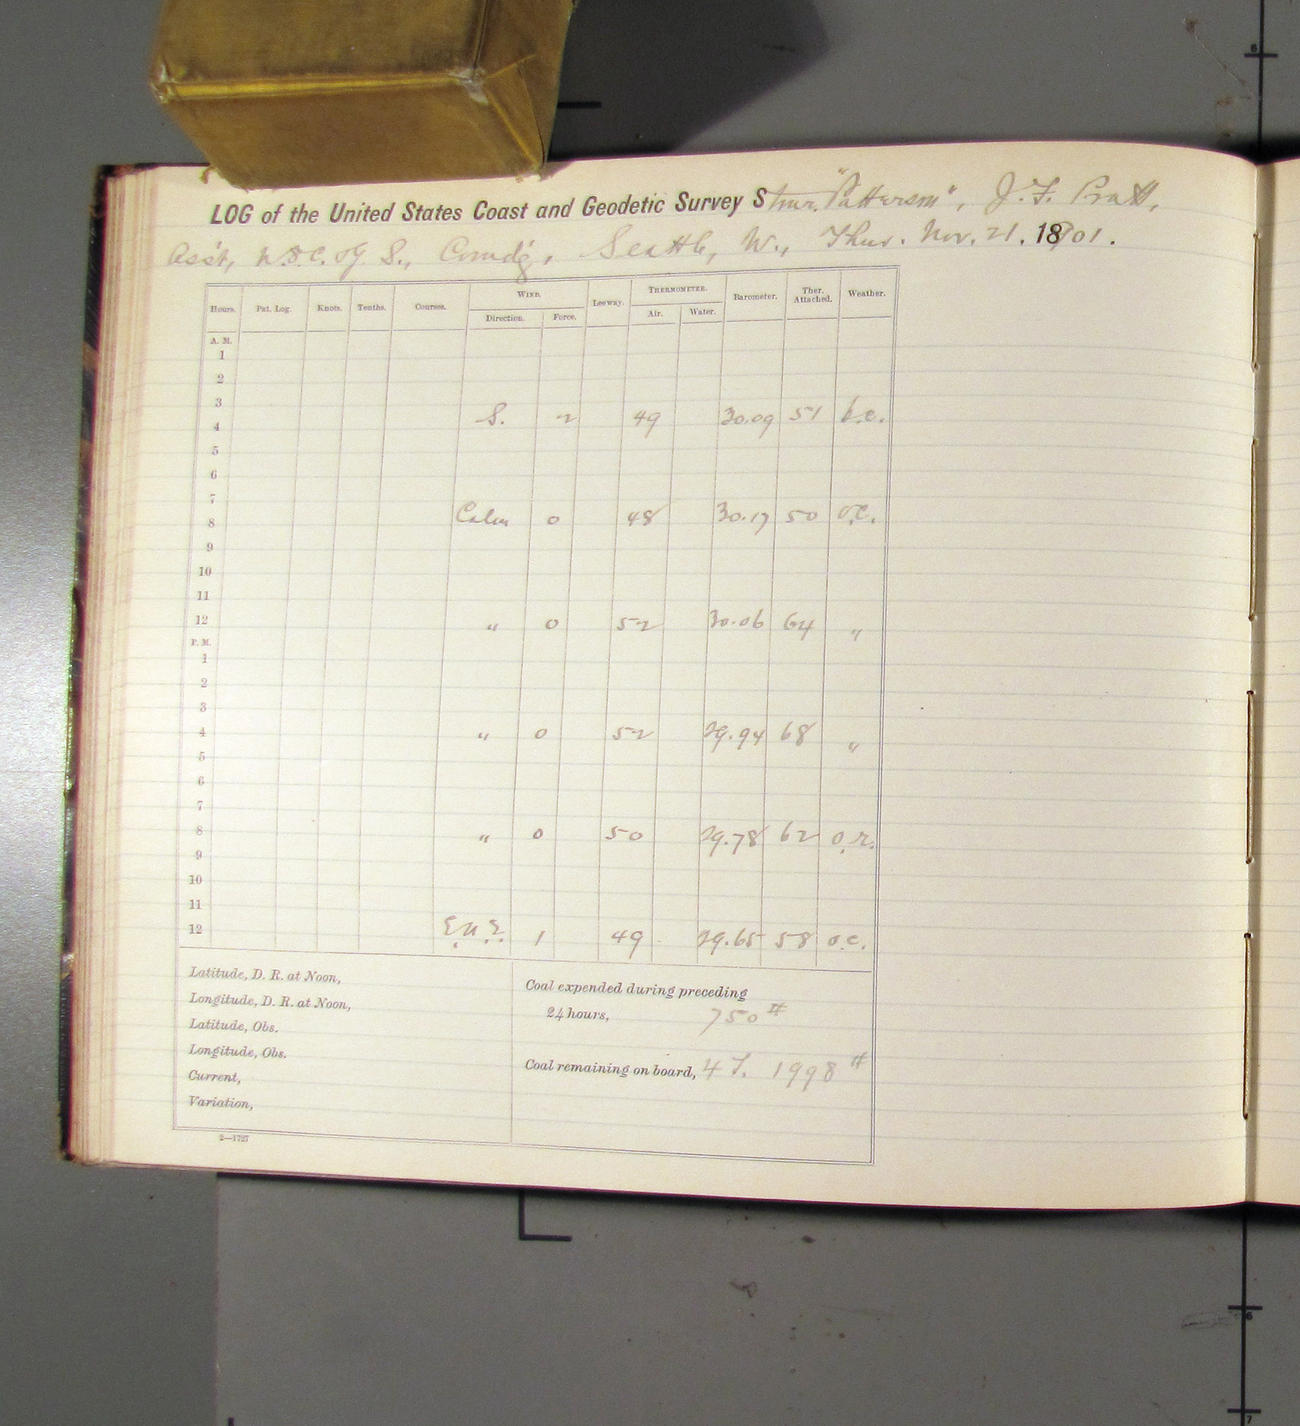 LOG of the United States Coast and Geodetic Survey Stmr. "Patterson", J. F. Pratt,
Ass't, U.S.C. & G. S., Comd'g, Seattle, W., Thur. Nov. 21, 1901.
Hours. Pat. Log. Knots. Tenths. Courses. WIND. Leeway. THERMOMETER. Barometer. Ther. Attached. Weather.
Direction. Force. Air. Water.
A. M.
1
2
3
4 S. 2 49 30.09 51 b.c.
5
6
7
8 Calm 0 48 30.17 50 o.c.
9
10
11
12 " 0 52 30.06 64 "
P. M.
1
2
3
4 " 0 52 29.94 68 "
5
6
7
8 " 0 50 29.78 62 o.r.
9
10
11
12 E.N.E. 1 49 29.65 58 o.c.
Latitude, D. R. at Noon,
Longitude, D. R. at Noon,
Latitude, Obs.
Longitude, Obs.
Current,
Variation,
Coal expended during preceding
24 hours, 750 #
Coal remaining on board, 4 T. 1998 #
2—1727
6
6
7